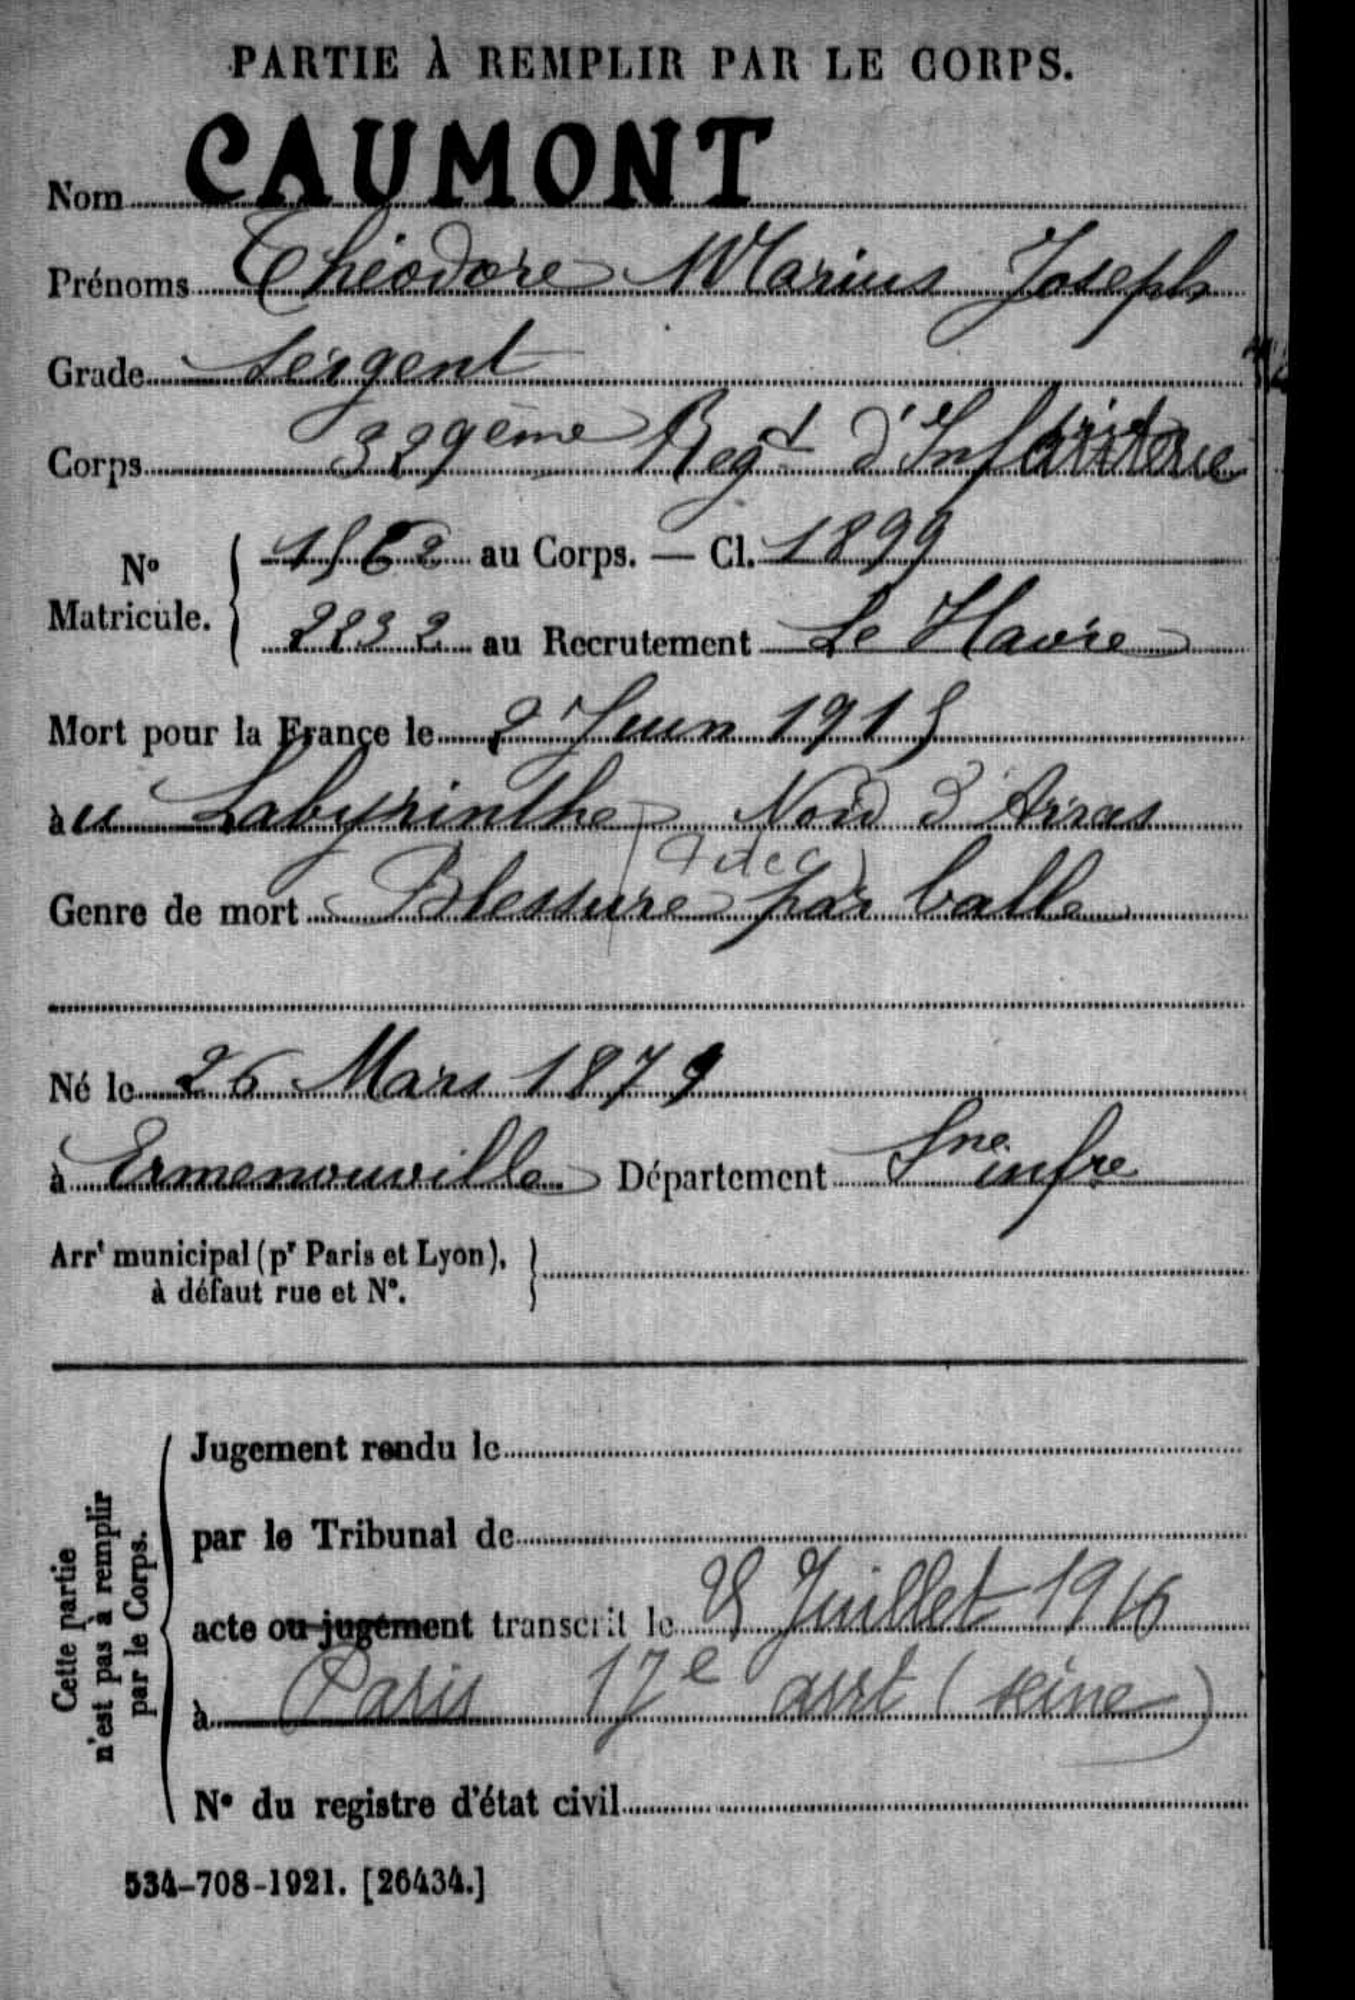 PARTIE À REMPLIR PAR LE CORPS.
Nom CAUMONT
Prénoms Théodore Marius Joseph
Grade Sergent
Corps 329ème Regt d'Infanterie
No Matricule. 1562 au Corps. — Cl. 1899
2232 au Recrutement Le Havre
Mort pour la France le 2 Juin 1915
au Labyrinthe Nord d'Arras
Genre de mort Blessure par balle
Né le 26 Mars 1879
à Ermenouville Département Sne infre
Arrt municipal (pr Paris et Lyon),
à défaut rue et No.
Cette partie
n'est pas à remplir
par le Corps.
Jugement rendu le
par le Tribunal de
acte ou jugement transcrit le 25 Juillet 1916
à Paris 17e arrt (seine)
No du registre d'état civil
534-708-1921. [26434.]